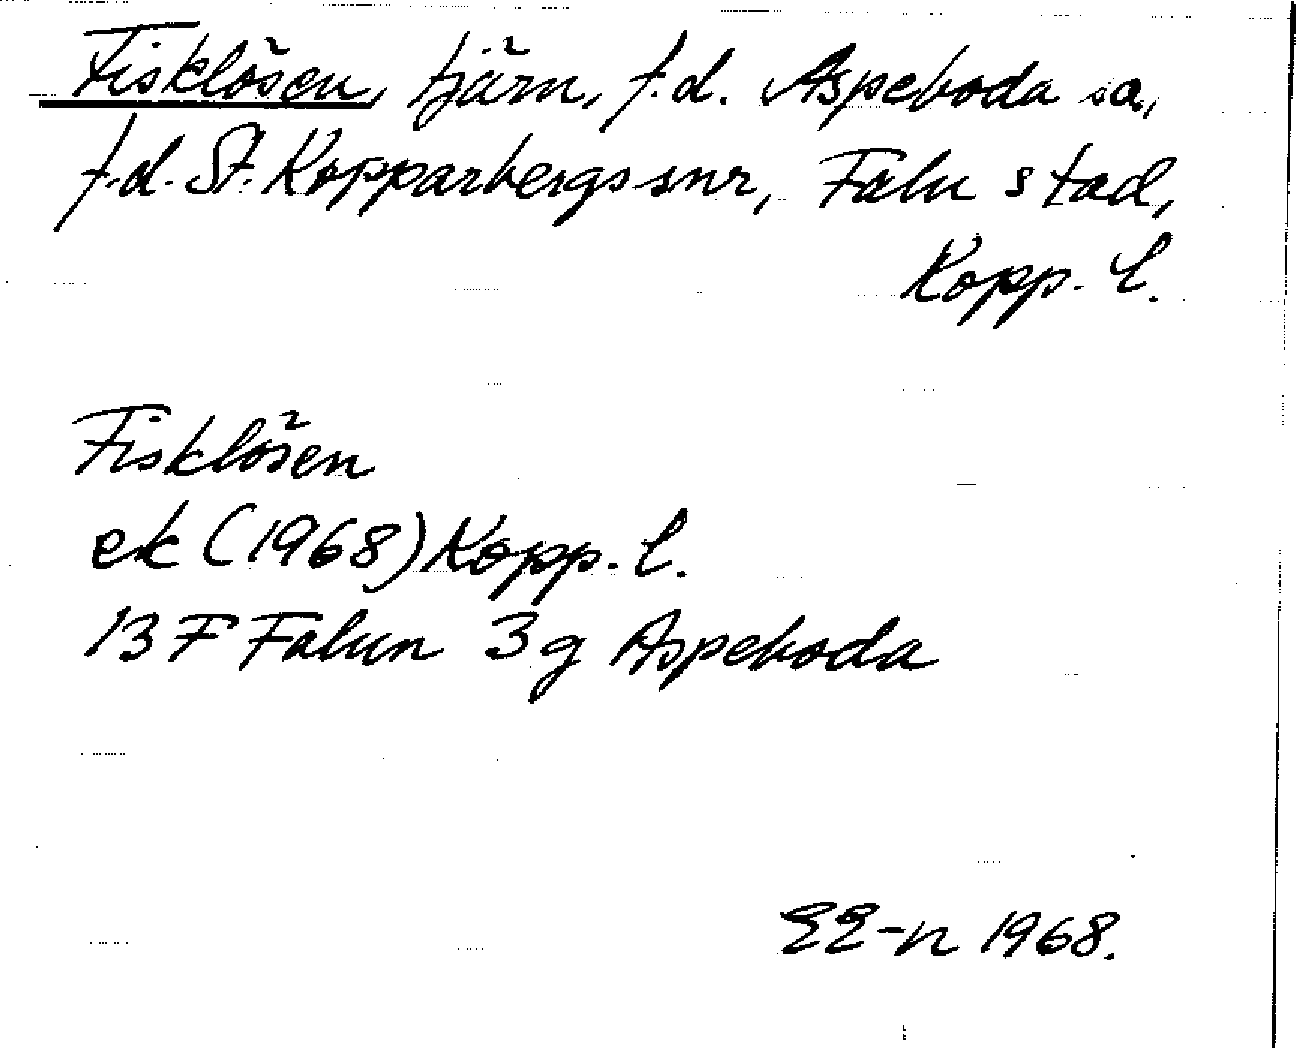 Fisklösen, tjärn, f.d. Aspeboda sn,
f.d. St. Kopparbergs snr, Falu stad,
Kopp. l.
Fisklösen
ek (1968) Kopp. l.
13 F Falun 3g Aspeboda
EE-n 1968.